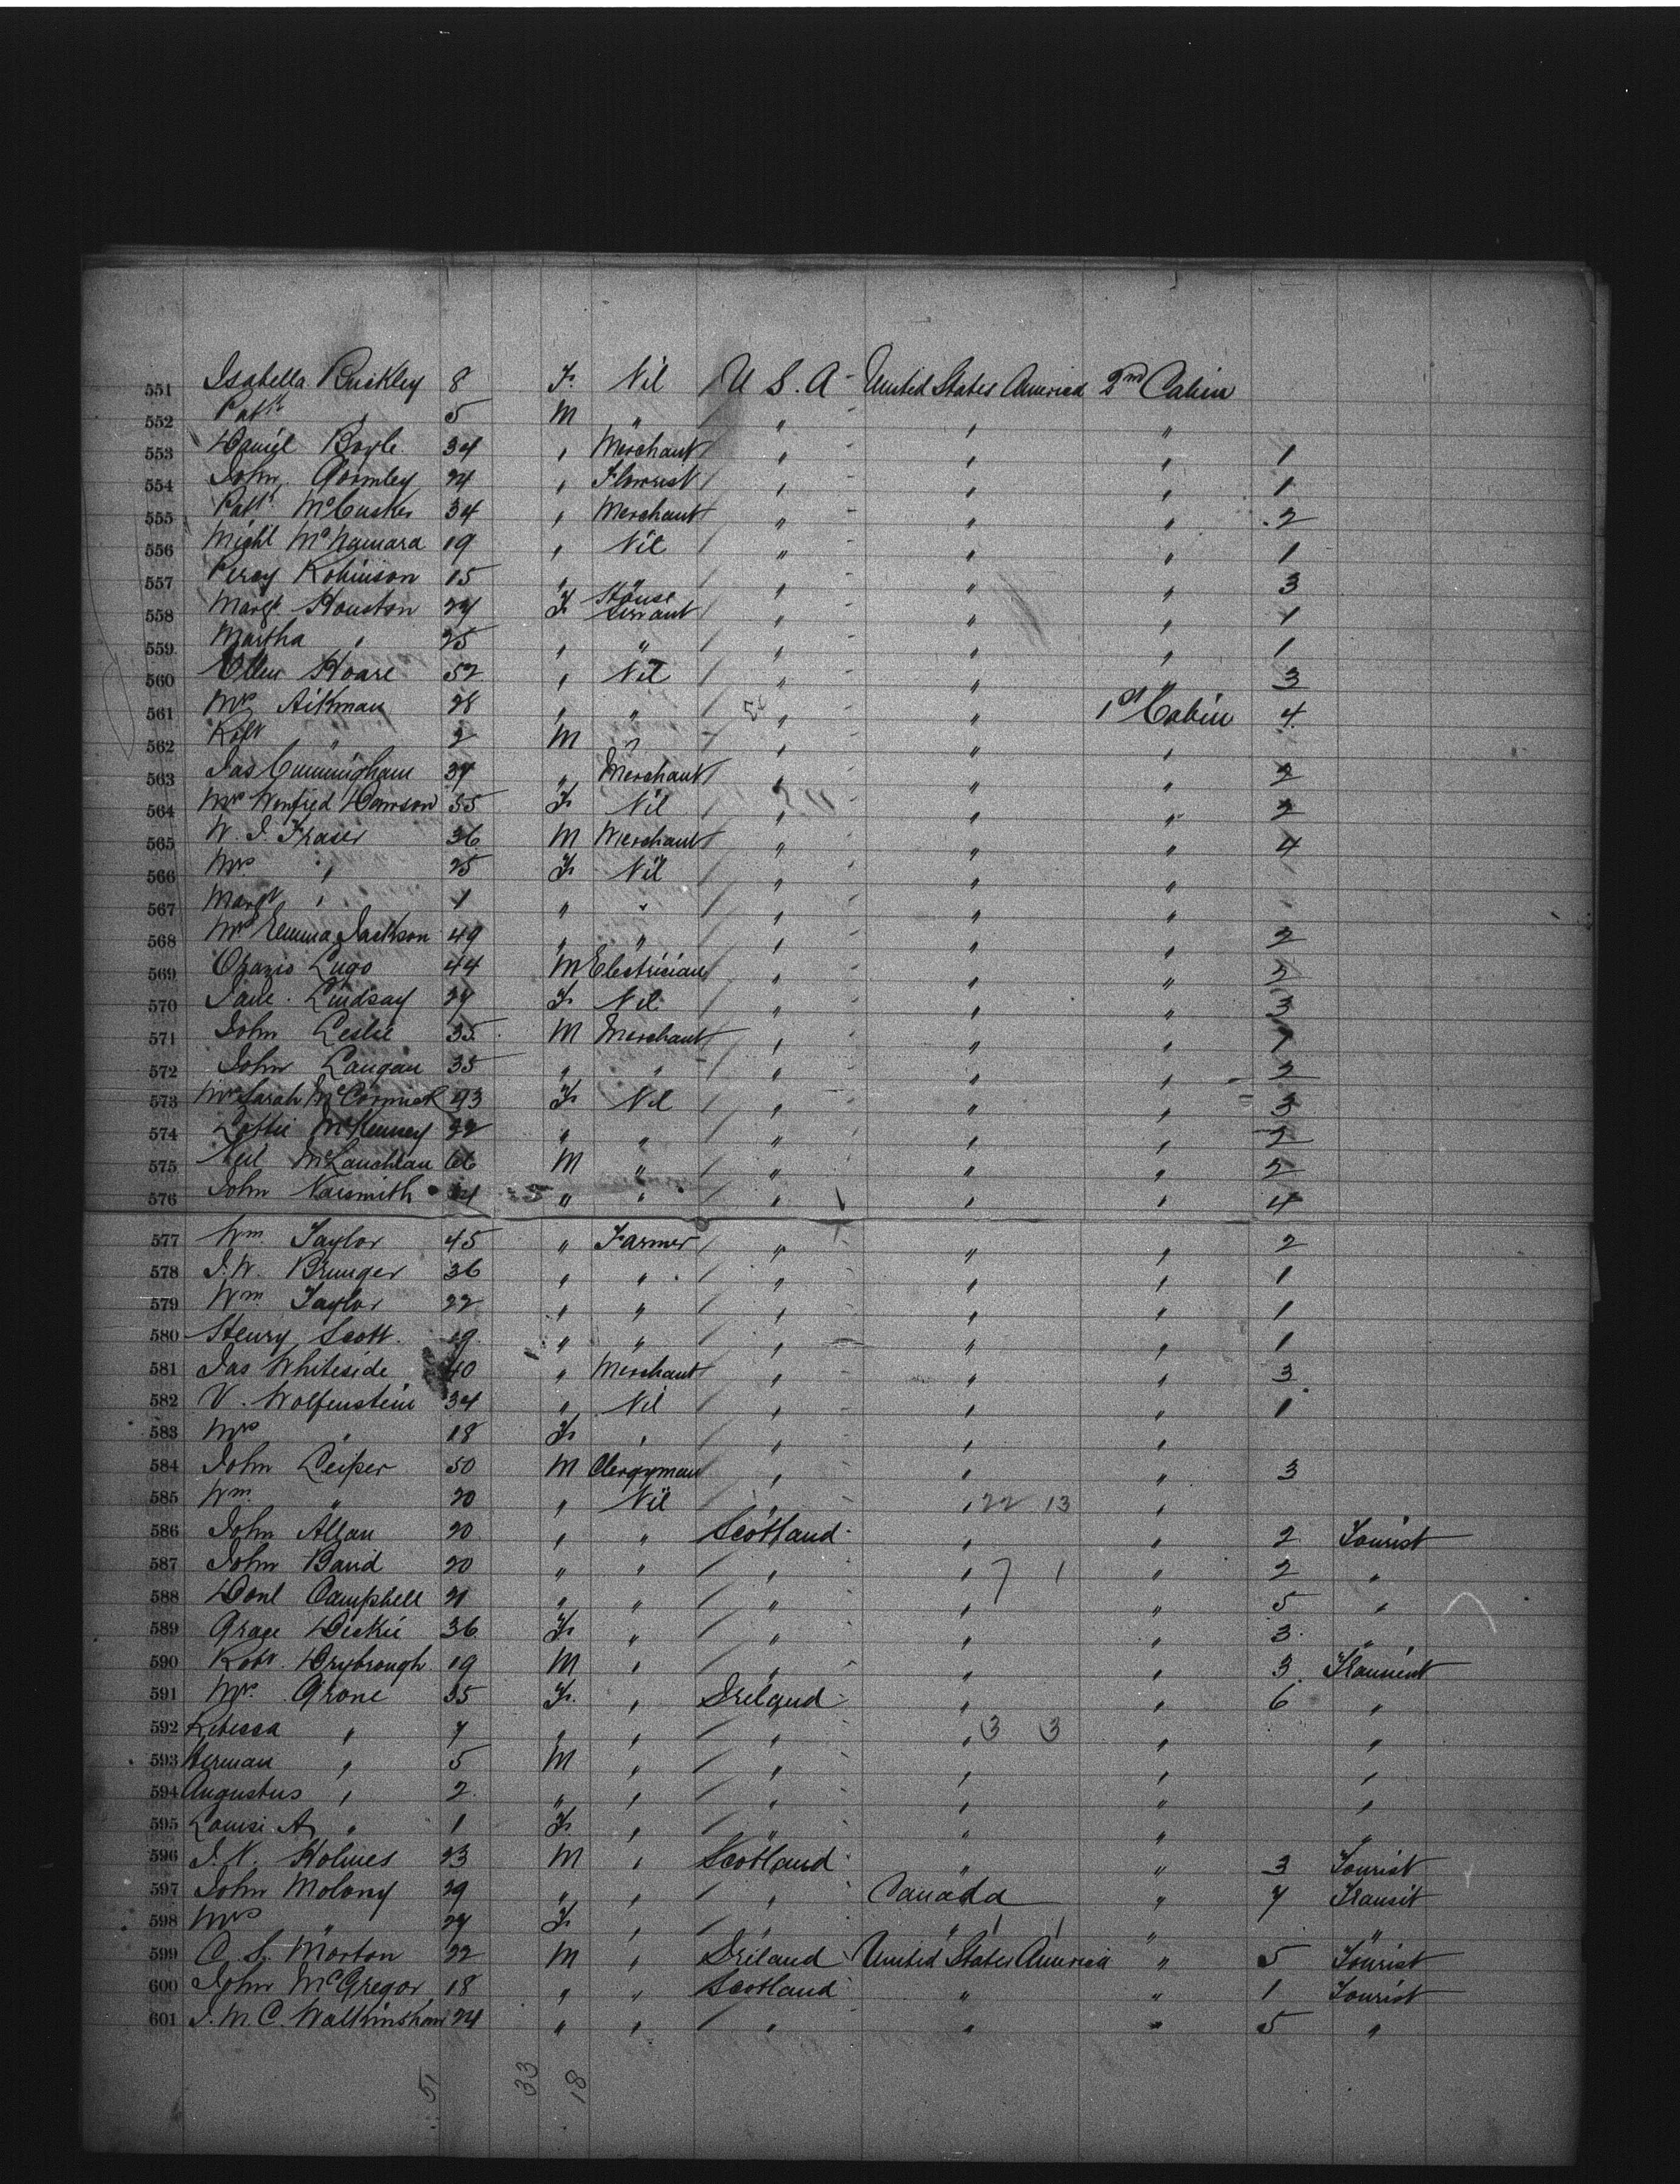 551 Isabella Buckley 8 F. Nil U S. A United States America 2nd Cabin
552 Patk " 5 M " " " "
553 Daniel Boyle 34 " Merchant " " " 1
554 John Gormley 24 " Florist " " " 1
555 Patk McCusker 34 " Merchant " " " 2
556 Michl McNamara 19 " Nil " " " 1
557 Percy Robinson 15 " " " " " 3
558 Margt Houston 24 F House Servant " " " 1
559 Martha " 25 " " " " " 1
560 Ellen Hoare 52 " Nil " " " 3
561 Mrs Aikman 28 " " " " 1st Cabin 4
562 Robt " 2 M " " " "
563 Jas Cunningham 34 " Merchant " " " 2
564 Mrs Winfred Dawson 35 F Nil " " " 2
565 W. J. Fraser 36 M Merchant " " " 4
566 Mrs " 25 F Nil " " "
567 Margt " 1 " " " " "
568 Mrs Emma Jackson 49 " " " " " 2
569 Orazio Lugo 44 M Electrician " " " 2
570 Jane Lindsay 27 F Nil " " " 3
571 John Leslie 35 M Merchant " " " 1
572 John Langan 35 " " " " " 2
573 Mrs Sarah McCormick 43 F Nil " " " 3
574 Lottie McKenney 22 " " " " " 2
575 Neil McLauchlan 66 M " " " " 2
576 John Naismith " " " " " 4
577 Wm. Taylor 45 " Farmer " " " 2
578 J. W. Brunger 36 " " " " " 1
579 Wm. Taylor 22 " " " " " 1
580 Henry Scott 19 " " " " " 1
581 Jas Whiteside 40 " Merchant " " " 3
582 V. Wolfenstein 34 " Nil " " " 1
583 Mrs " 18 F " " " "
584 John Leiper 50 M Clergyman " " " 3
585 Wm. " 20 " Nil " " 22 13 "
586 John Allan 20 " " Scotland " " 2 Tourist
587 John Baird 20 " " " " 7 1 " 2 "
588 Donl Campbell 21 " " " " " 5 "
589 Grace Dickie 36 F " " " " 3 "
590 Robt. Drybrough 19 M " " " " 3 Transient
591 Mrs. Grone 35 F. " Ireland " " 6 "
592 Rebessa " 7 " " " " 3 3 " "
593 Herman " 5 M " " " " "
594 Augustus " 2 " " " " " "
595 Louisi A " 1 F " " " " "
596 J. N. Holmes 23 M " Scotland " " 3 Tourist
597 John Molony 29 " " " Canada " 7 Transit
598 Mrs " 27 F " " " 1 1 " "
599 C. S. Morton 22 M " Ireland United States America " 5 Tourist
600 John McGregor 18 " " Scotland " " 1 Tourist
601 J. M. C. Walkinshaw 24 " " " " " 5 "
51 33 18